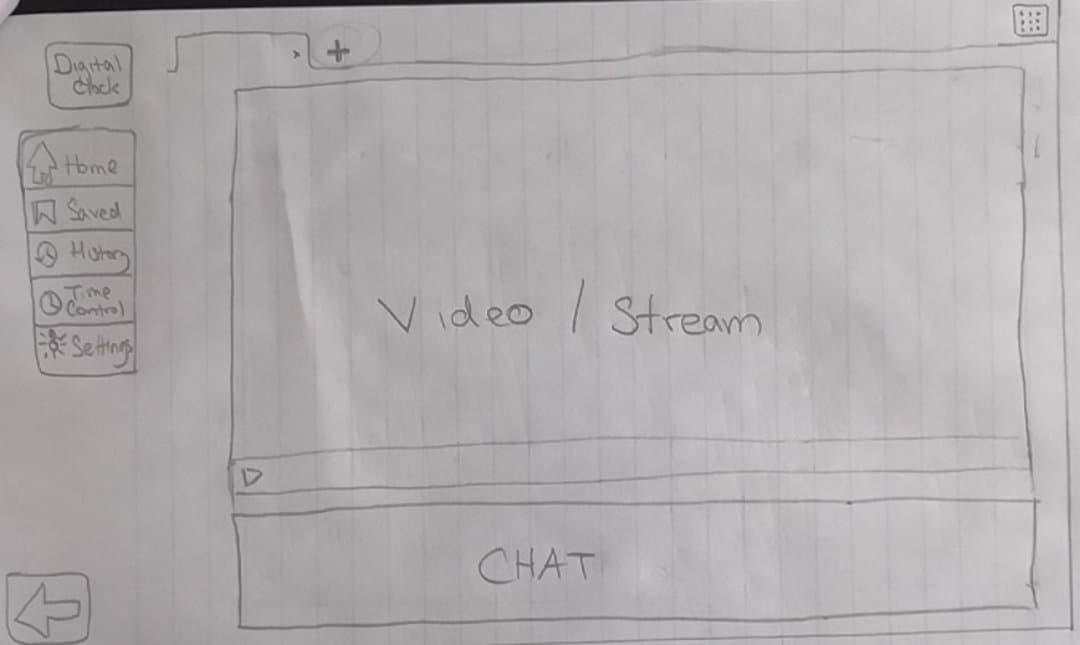 Digital
Clock
+
Home
Saved
History
Time
Control
Settings
Video / Stream
CHAT